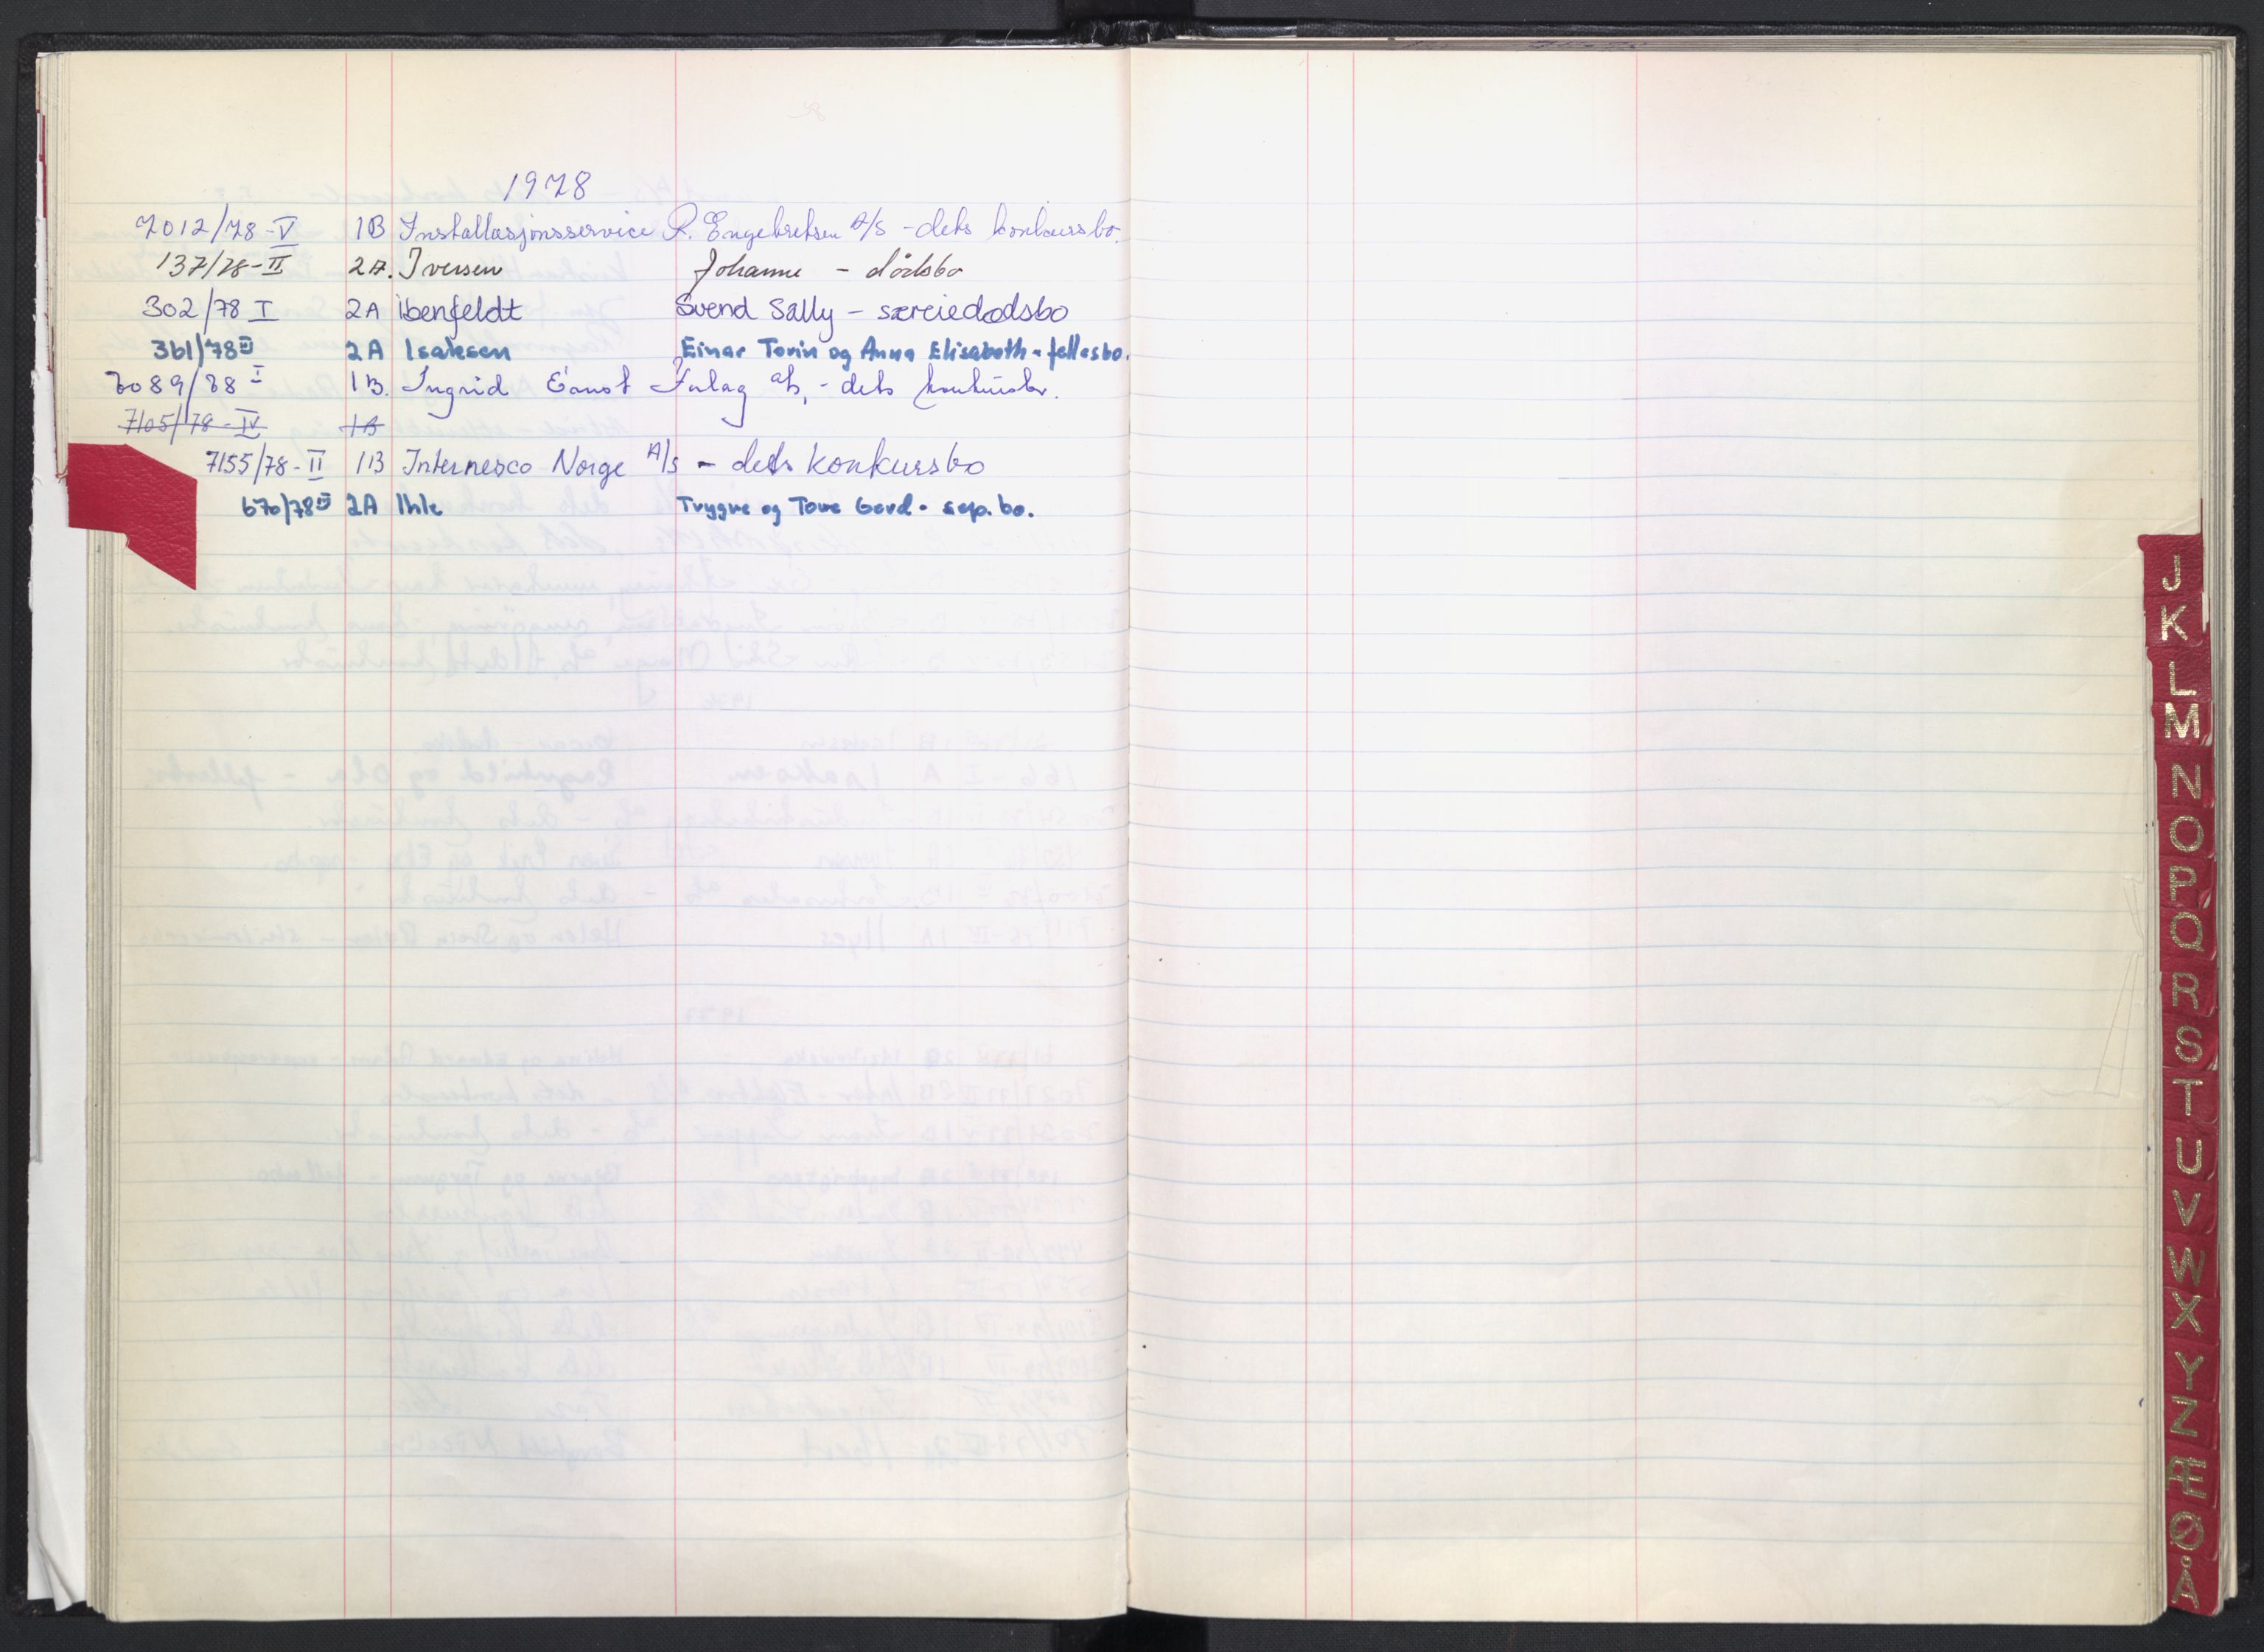 1978
7012/78-V 1B Installasjonsservice R. Engebretsen A/S - dets konkursbo.
137/78-II 2A. Iversen Johanne - dødsbo
302/78 I 2A Ibenfeldt Svend Sally - særeiedødsbo
361/78 III 2A Isaksen Einar Torin og Anna Elisabeth - fellesbo.
7089/78 I 1B. Ingrid Ernst Forlag a/s, - dets konkursbo.
7105/78-IV 1B
7155/78-II 1B Internesco Norge A/S - dets konkursbo
670/78 III 2A Ihle Trygve og Tove Gerd - sep.bo.
J
K
L
M
N
O
P
Q
R
S
T
U
V
W
X
Y
Z
Æ
Ø
Å